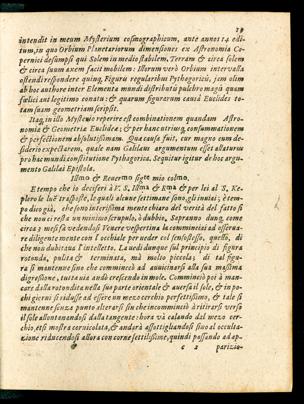 19
intendit in meum Mysterium cosmographicum, ante annos 14 edi-
tum, in quo Orbium Planetariorum dimensiones ex Astronomia Co-
pernici desumpsi qui Solem in medio stabilem, Terram & circa Solem
& circa suum axem facit mobilem: Illorum verò Orbium intervalla
ostendi respondere quinq, Figuris regularibus Pythagoricis, jam olim
ab hoc authore inter Elementa mundi distributis pulchro magis quam
fœlici aut legitimo conatu: & quarum figurarum causâ Euclides to-
tam suam geometriam scripsit.
Itaq, in illo Mysterio reperire est combinationem quandam Astro-
nomiæ & Geometriæ Euclideæ; & per hanc utriusq, consummationem
& perfectionem absolutissimam. Quæ causa fuit, cur magno cum de-
siderio expectarem, quale nam Galilæus argumentum esset allaturus
pro hac mundi constitutione Pythagorica. Sequitur igitur de hoc argu-
mento Galilæi Epistola.
Illmo & Reuermo sigre mio colmo.
E tempo che io deciferi à V. S. Illma & Rma & per lei al S. Ke-
plero le
scorse, le quali alcune settimane sono, gli inuiai; è tem-
po dico già, che sono interissima mente chiaro del verità del fatto si
che non ci resta un minimo scrupulo, ò dubbio. Sapranno dunq, come
circa 3 mesi fa vedendosi Venere vespertina la cominciai ad osserua-
re diligente mente con l'occhiale per veder col senso stesso, quello, di
che non dubitaua l'intelletto. La vedi dunque sul principio di figura
rotonda, pulita & terminata, mà molto piccola; di tal figu-
ra si mantenne sino che cominciò ad auuicinarsi alla sua massima
digressione, tutta uia andò crescendo in mole. Cominciò poi à man-
care dalla rotondità nella sua parte orientale & auersa il sole, & in po-
chi giorni si ridusse ad essere un mezo cerchio perfettissimo, & tale si
mantenne sinza punto alterarsi sin che incominciò à ritirarsi verso
il sole allontanandosi dalla tangente: hora và calando dal mezo cer-
chio, et si mostra cornicolata, & andarà assottigliandosi sino al occulta-
zione riducendosi allora con corne sottilissime, quindi passando ad ap-
c 2 parizio-